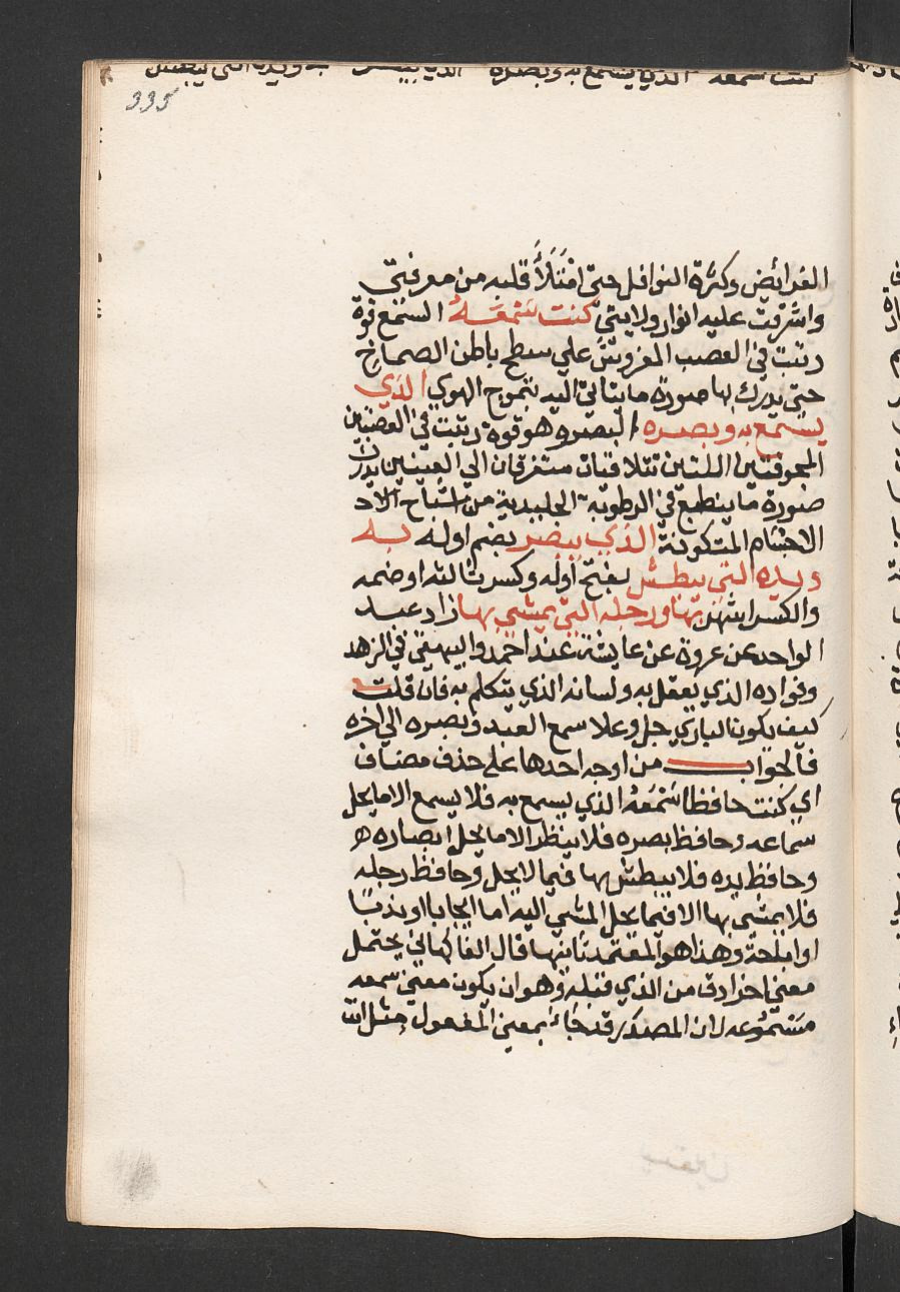 كنت سمعه الذي يسمع به وبصره الذي يبصر به ويده التي يبطش
335
الفرائض وكثرة النوافل حتى امْتَلَأَ قلبه من معرفتي
واشرقت عليه انوار ولايتي كنت سَمْعَهُ السمع قوة
رتبت في العصب المفروش على سطح باطن الصماخ
حتى يدرك بها صورة ما يتأتى اليه بتموج الهوي الذي
يسمع به وبصره البصر وهو قوة رتبت في العصبتين
المجوفتين اللتين تتلاقيان ستفرقان الي العينين يدرك
صورة ما ينطبع في الرطوبة الجليدية من اشباح
الاجسام المتكونة الذي يبصر بضم اوله به
ويده التي يبطش بفتح أوله وكسر ثالثه اوضمه
والكسر اشهر بها ورجله التي يمشي بها زاد عبد
الواحد عن عروة عن عايشة عند احمد والبيهقي في الزهد
وفواده الذي يعقل به ولسانه الذي يتكلم به فان قلت
كيف يكون الباري جل وعلا سمع العبد وبصره الي اخره
فالجواب من اوجه احدها على حذف مضاف
اي كنت حافظا سَمْعَهُ الذي يسمع به فلا يسمع الا ما يحل
سماعه وحافظ بصره فلا ينظر الا ما يحل ابصاره
وحافظ يده فلا يبطش بها فيما لا يحل وحافظ رجله
فلا يمشي بها الا فيما يحل المشي اليه اما ايجابا او ندبا
او اباحة وهذا هو المعتمد ثانيها قال الفاكهاني يحتمل
معني اخر ادق من الذي قبله وهو ان يكون معني سمعه
مسموعه لان المصدر قد جاء بمعني المفعول مثل انت